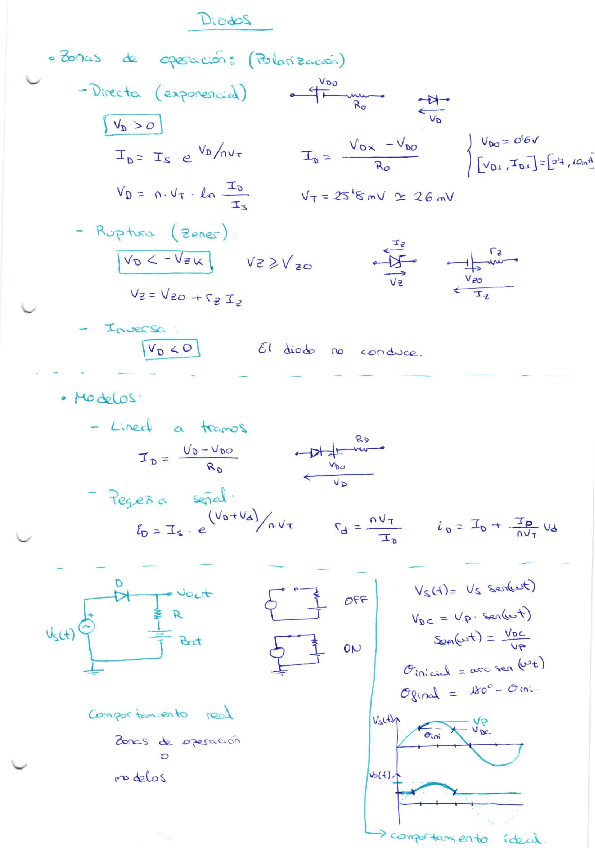 Diodos
• Zonas de operación: (Polarización)
- Directa (exponencial)
VDO
RD
VD
VD > 0
ID = IS e VD/nVT
ID = VDX - VDO / RD
VDO = 0'6V
[VDi, IDi] = [0'7, 10mA]
VD = n·VT · ln ID/IS
VT = 25'8 mV ≃ 26 mV.
- Ruptura (Zener).
VD < -VZK
VZ ≥ VZO
IZ
VZ
rZ
VZO
IZ
VZ = VZO + rZ IZ
- Inversa:
VD < 0
El diodo no conduce.
• Modelos:
- Lineal a tramos
ID = VD - VDO / RD
RD
VDO
VD
- Pequeña señal:
iD = IS · e (VD+Vd)/n·VT
rd = nVT / ID
iD = ID + ID/nVT Vd
D
Vout
R
Bat
Vs(t)
OFF
ON
Vs(t) = Vs sen(ωt)
VDC = VP · sen(ωt)
sen(ωt) = VDC / VP
θinicial = arc sen(ωt)
θfinal = 180° - θini.
Comportamiento real
Zonas de operación
o
modelos
Vs(t)
VP
VDC
θini
Vo(t)
comportamiento ideal.